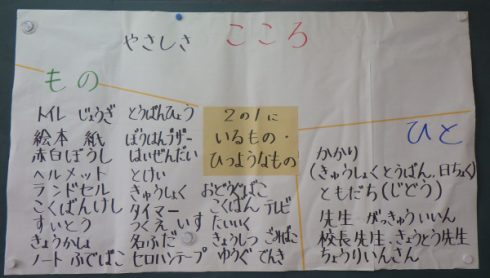 やさしき こころ
もの
トイレ じょうぎ とうばんひょう
絵本 紙
赤白ぼうし はいぜんだい
ヘルメット とけい
ランドセル きゅうしょく おどうぐばこ
こくばんけし タイマー こくばん テレビ
すいとう つくえ いす たいいく
きょうかしょ 名ふだ きょうしつ ごみばこ
ノート ふでばこ セロハンテープ ゆうぐ でんき
2の1に
いるもの・
ひつようなもの
ひと
かかり
(きゅうしょくとうばん、日ちょく)
ともだち(じどう)
先生 がっきゅういいん
校長先生・きょうとう先生
ちょうりいんさん